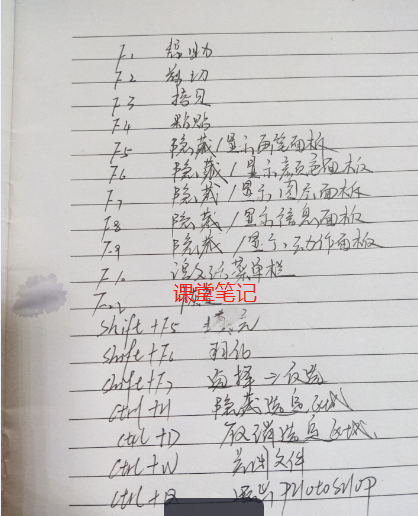 F1 帮助
F2 剪切
F3 拷贝
F4 粘贴
F5 隐藏/显示画笔面板
F6 隐藏/显示颜色面板
F7 隐藏/显示图层面板
F8 隐藏/显示信息面板
F9 隐藏/显示动作面板
F10 菜单栏
课堂笔记
shift+F5 填充
shift+F6 羽化
shift+F7 选择→反选
ctrl+H 隐藏选定区域
ctrl+D 取消选定区域
ctrl+W 关闭文件
ctrl+Q Photoshop